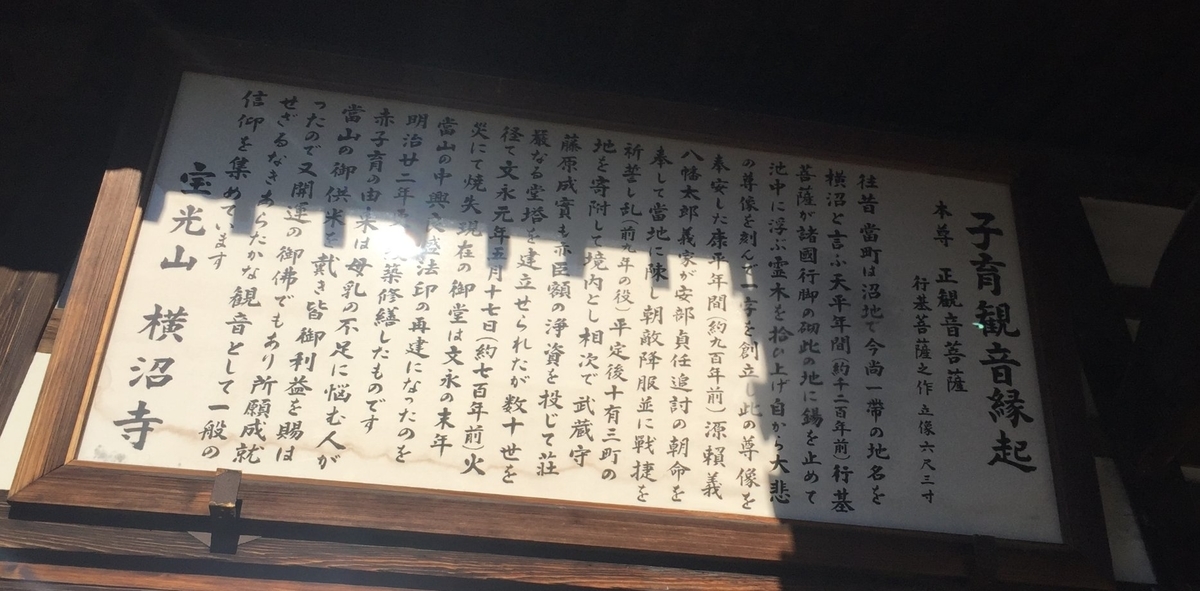 子育観音縁起
本尊 正観音菩薩
行基菩薩之作 立像六尺三寸
往昔當町は沼地で今尚一帯の地名を
横沼と言ふ天平年間(約千二百年前)行基
菩薩が諸國行脚の砌此の地に錫を止めて
池中に浮ぶ霊木を拾ひ上げ自から大悲
の尊像を刻んで一宇を創立し此の尊像を
奉安した康平年間(約九百年前)源頼義
八幡太郎義家が安部貞任追討の朝命を
奉して當地に陳し朝敵降服並に戦捷を
祈誓し乱(前九年の役)平定後十有三町の
地を寄附して境内とし相次で武蔵守
藤原成實も亦巨額の淨資を投じて荘
厳なる堂塔を建立せられたが数十世を
径て文永元年五月十七日(約七百年前)火
災にて焼失現在の御堂は文永の末年
當山の中興 法印の再建になったのを
明治廿二年 改築修繕したものです
赤子育の由来は母乳の不足に悩む人が
當山の御供米を戴き皆御利益を賜は
ったので又開運の御佛でもあり所願成就
せざるなきあらたかな観音として一般の
信仰を集めています
宝光山 横沼寺